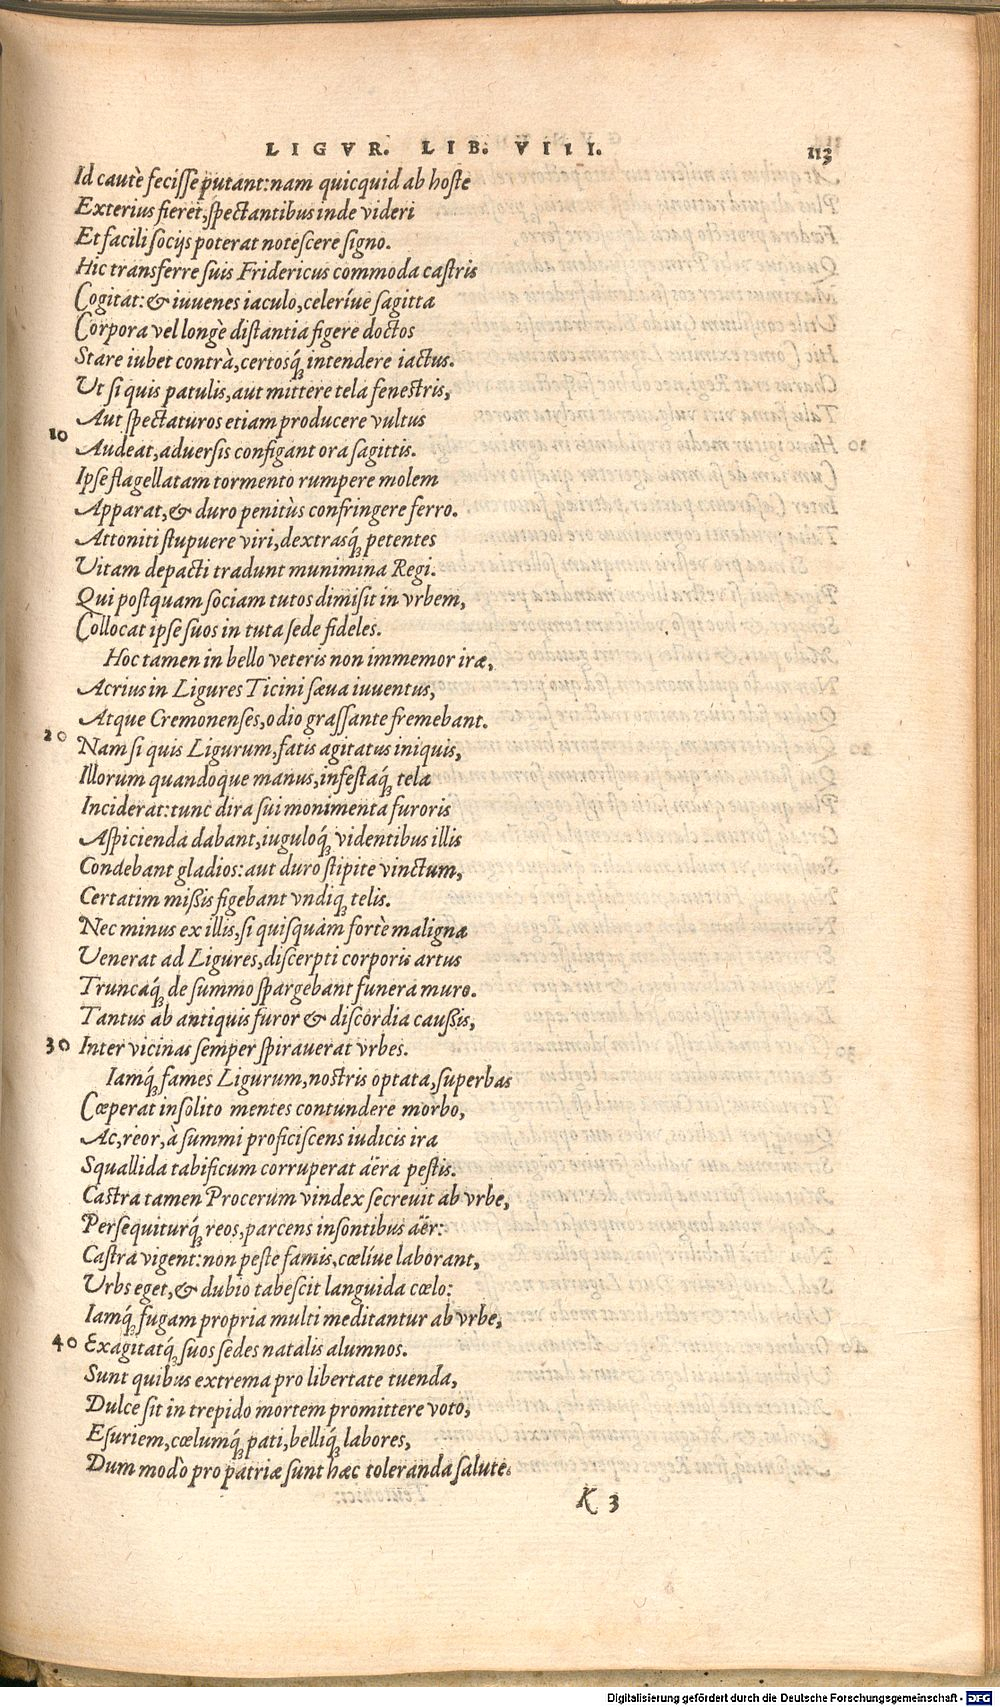 LIGVR. LIB. VIII. 113
Id cautè fecisse putant: nam quicquid ab hoste
Exterius fieret, spectantibus inde videri
Et facili socijs poterat notescere signo.
Hic transferre suis Fridericus commoda castris
Cogitat: & iuvenes iaculo, celeríve sagitta
Corpora vel longè distantia figere doctos
Stare iubet contrà, certosq́; intendere iactus.
Ut si quis patulis, aut mittere tela fenestris,
Aut spectaturos etiam producere vultus
10 Audeat, adversis configant ora sagittis.
Ipse flagellatam tormento rumpere molem
Apparat, & duro penitùs confringere ferro.
Attoniti stupuere viri, dextrasq́; petentes
Vitam depacti tradunt munimina Regi.
Qui postquam sociam tutos dimisit in vrbem,
Collocat ipse suos in tuta sede fideles.
Hoc tamen in bello veteris non immemor iræ,
Acrius in Ligures Ticini sæva iuventus,
Atque Cremonenses, odio grassante fremebant.
20 Nam si quis Ligurum, fatis agitatus iniquis,
Illorum quandoque manus, infestaq́; tela
Inciderat: tunc dira sui monimenta furoris
Aspicienda dabant, iuguloq́; videntibus illis
Condebant gladios: aut duro stipite vinctum,
Certatim missis figebant vndiq; telis.
Nec minus ex illis, si quisquam fortè malignæ
Venerat ad Ligures, discerpti corporis artus
Truncaq́; de summo spargebant funera muro.
Tantus ab antiquis furor & discordia caussis,
30 Inter vicinas semper spiraverat vrbes.
Iamq́; fames Ligurum, nostris optata, superbas
Cœperat insolito mentes contundere morbo,
Ac, reor, à summi proficiscens iudicis ira
Squallida tabificum corruperat aëra pestis.
Castra tamen Procerum vindex secrevit ab vrbe,
Persequiturq́; reos, parcens insontibus aër:
Castra vigent: non peste famis, cœlíve laborant,
Vrbs eget, & dubio tabescit languida cœlo:
Iamq́; fugam propria multi meditantur ab vrbe,
40 Exagitatq́; suos sedes natalis alumnos.
Sunt quibus extrema pro libertate tuenda,
Dulce sit in trepido mortem promittere voto,
Esuriem, cœlumq́; pati, belliq́; labores,
Dum modò pro patriæ sunt hæc toleranda salute.
K 3
Digitalisierung gefördert durch die Deutsche Forschungsgemeinschaft - DFG